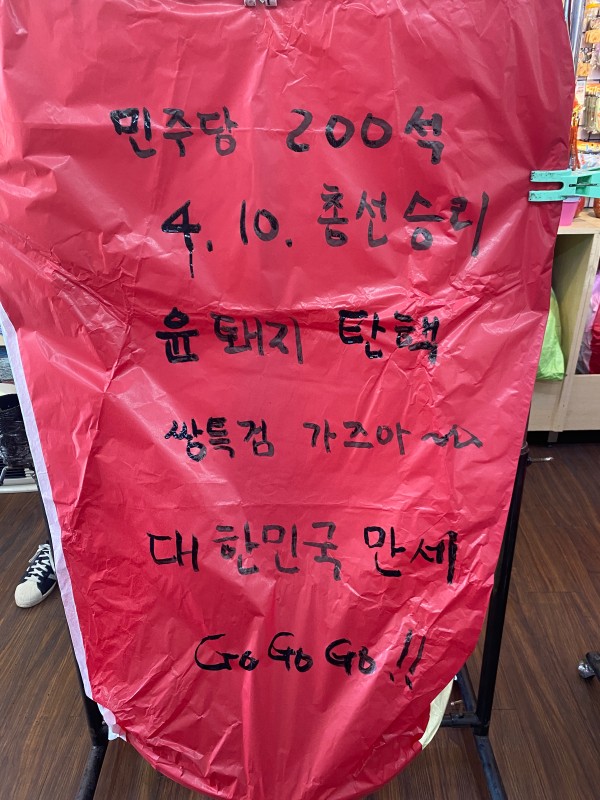 민주당 200석
4.10. 총선승리
윤돼지 탄핵
쌍특검 가즈아~~
대한민국 만세
GoGoGo!!